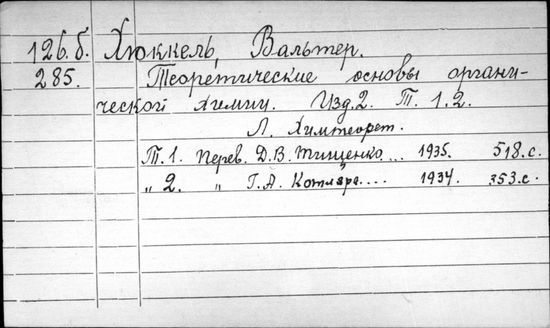 126.б. Хюккель, Вальтер.
285. Теоретические основы органи-
ческой химии. Изд.2. Т. 1.2.
Л. Химтеорет.
Т. 1. Перев. Д.В. Тищенко... 1935. 518.с.
„ 2. „ Г.А. Котляра.... 1934. 353.с.